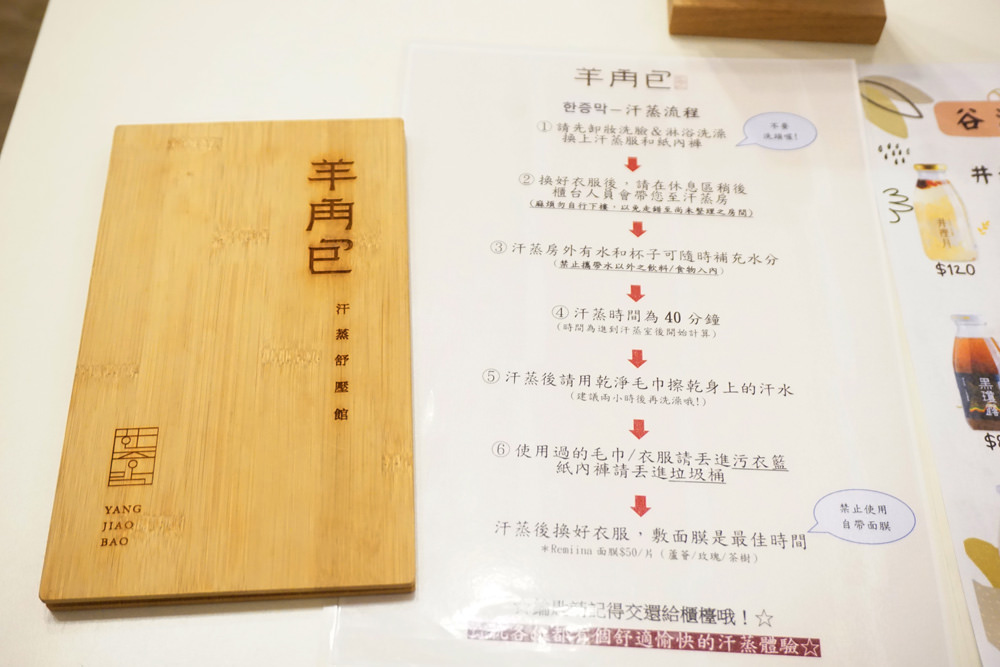 羊角包
汗蒸舒壓館
한증막
YANG
JIAO
BAO
羊角包
한증막－汗蒸流程
①請先卸妝洗臉&淋浴洗澡
換上汗蒸服和紙內褲
不要
洗頭喔!
②換好衣服後，請在休息區稍後
櫃台人員會帶您至汗蒸房
(麻煩勿自行下樓，以免走錯至尚未整理之房間)
③汗蒸房外有水和杯子可隨時補充水分
(禁止攜帶水以外之飲料/食物入內)
④汗蒸時間為 40 分鐘
(時間為進到汗蒸室後開始計算)
⑤汗蒸後請用乾淨毛巾擦乾身上的汗水
(建議兩小時後再洗澡哦!)
⑥使用過的毛巾/衣服請丟進污衣籃
紙內褲請丟進垃圾桶
禁止使用
自帶面膜
汗蒸後換好衣服，敷面膜是最佳時間
*Remiina 面膜$50/片 (蘆薈/玫瑰/茶樹)
記得交還給櫃檯哦！☆
個舒適愉快的汗蒸體驗☆
谷
井
$120
黑